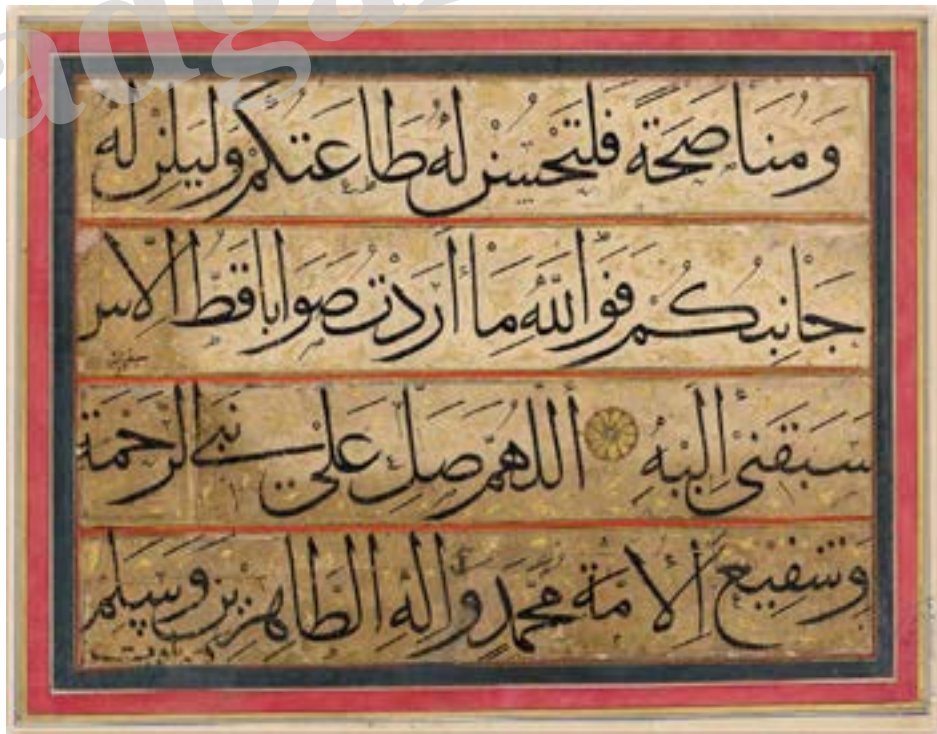 وَمُنَاصَحَةً فَلْتَحْسُنْ لَهُ طَاعَتُكُمْ وَلْيَلِنْ لَهُ
جَانِبُكُمْ فَوَاللهِ مَا أَرَدْتُ صَوَابًا قَطُّ
سَبَقَنِي إِلَيْهِ اللَّهُمَّ صَلِّ عَلَى نَبِيِّ الرَّحْمَةِ
وَشَفِيعِ الْأُمَّةِ مُحَمَّدٍ وَالِهِ الطَّاهِرِينَ وَسَلِّمْ